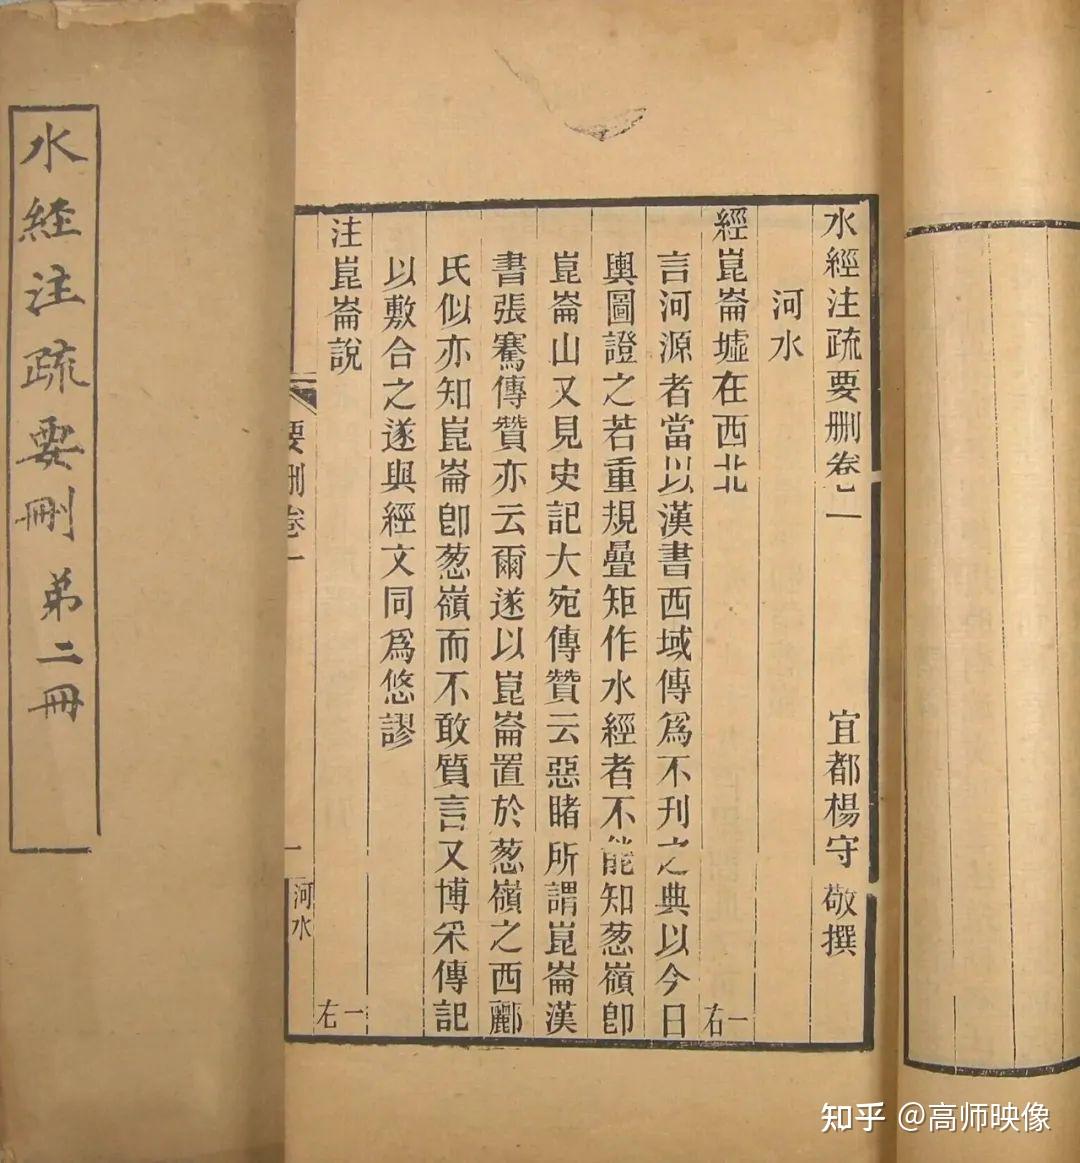 水經注疏要刪 弟二冊
水經注疏要刪卷一 宜都楊守敬撰
河水
經崑崙墟在西北 一右
言河源者當以漢書西域傳爲不刊之典以今日
輿圖證之若重規疊矩作水經者不能知葱嶺卽
崑崙山又見史記大宛傳贊云惡睹所謂崑崙漢
書張騫傳贊亦云爾遂以崑崙置於葱嶺之西酈
氏似亦知崑崙卽葱嶺而不敢質言又博采傳記
以敷合之遂與經文同爲悠謬
注崑崙說 一右
要刪卷一 一 河水
知乎 @高师映像